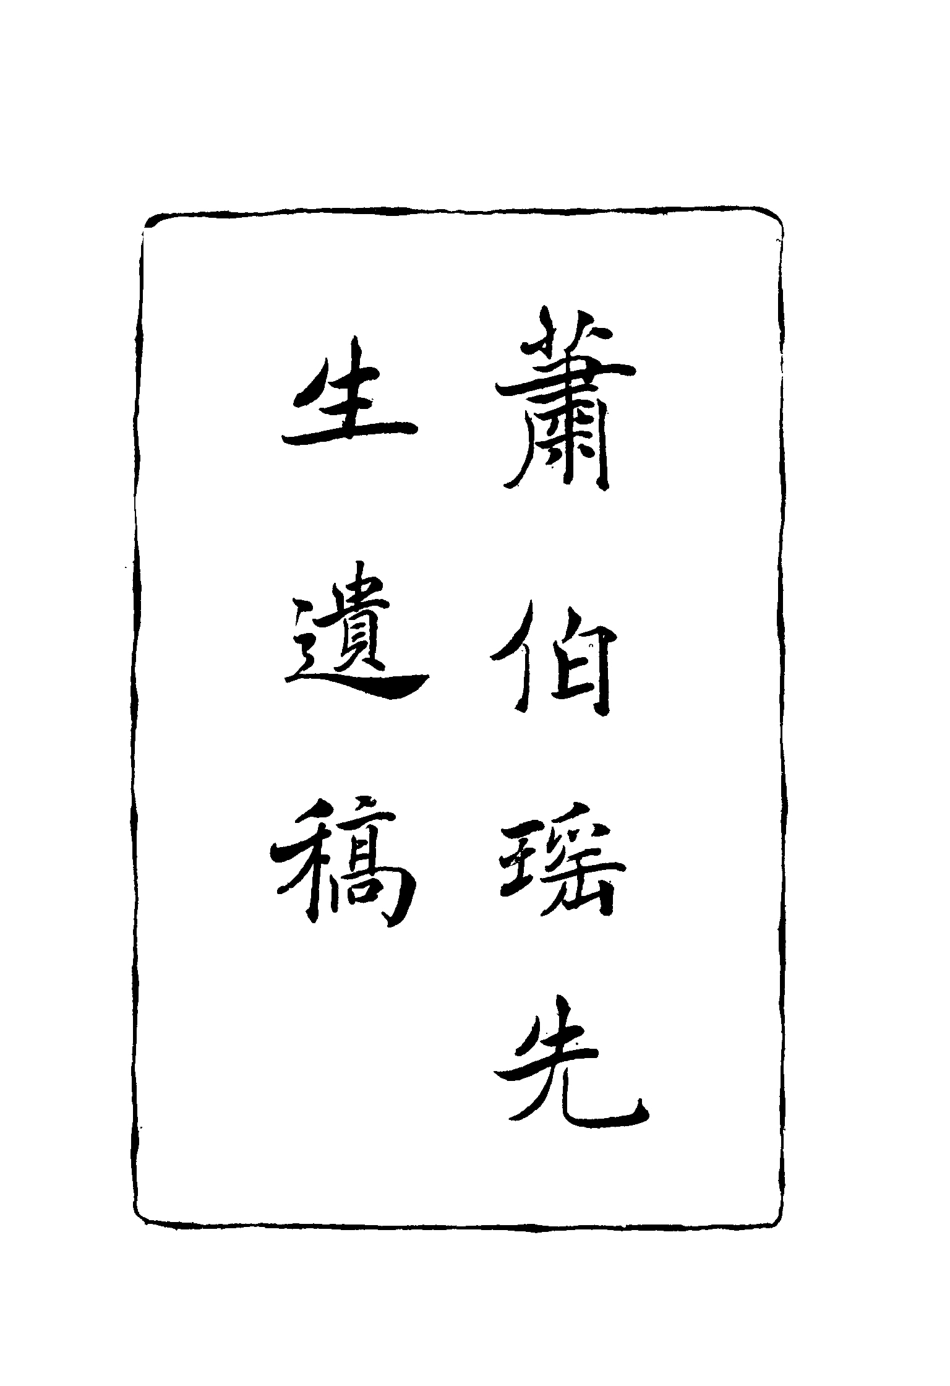 蕭伯瑶先
生遺稿